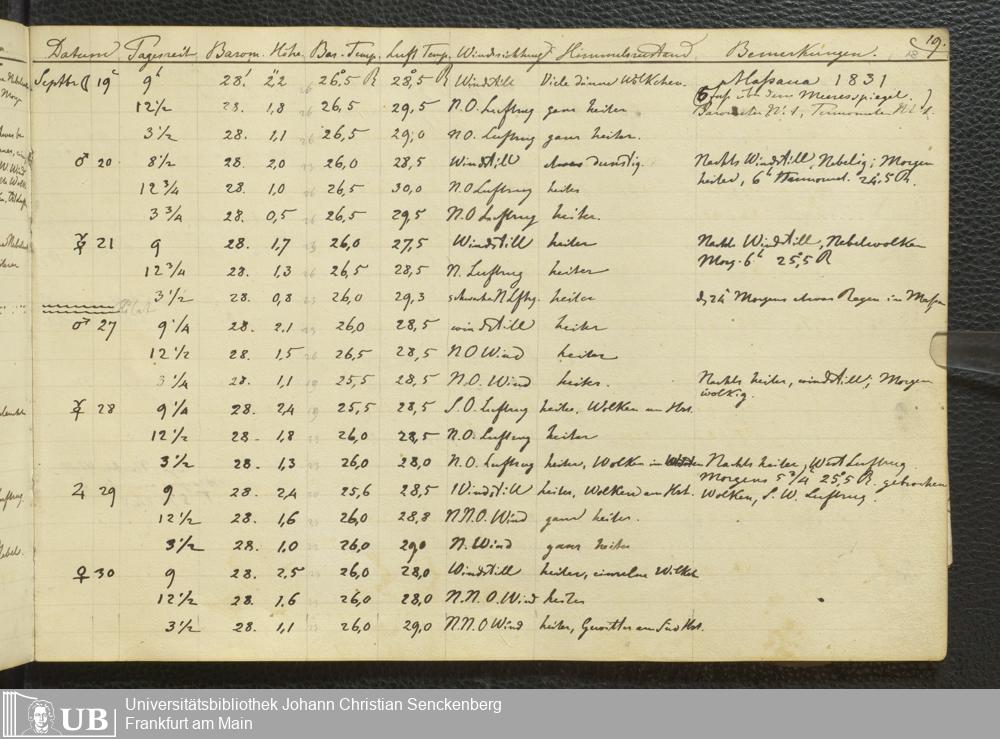 19.
Datum Tageszeit Barom. Höhe. Bar. Temp. Luft Temp. Windrichtung Himmelszustand Bemerkungen.
Septbr ☾ 19 9h 28' 2,2 26,5 R 28,5 R Windstill Viele dünne Wölkchen. Massaua 1831
12 1/2 28. 1,8 26,5 29,5 N.O. Luftzug ganz heiter Fuss über dem Meeresspiegel.
3 1/2 28. 1,1 26,5 29,0 N.O. Luftzug ganz heiter. Barometer N. 1, Termometer
♂ 20 8 1/2 28. 2,0 26,0 28,5 Windstill etwas dunstig. Nachts Windstill Nebelig; Morgen
12 3/4 28. 1,0 26,5 30,0 N.O Luftzug heiter heiter, 6h Thermomet. 24,5 R.
3 3/4 28. 0,5 26,5 29,5 N.O Luftzug heiter.
☿ 21 9 28. 1,7 26,0 27,5 Windstill heiter Nachts Windstill, Nebelwolken
12 3/4 28. 1,3 26,5 28,5 N. Luftzug heiter Morg. 6h 25,5 R
3 1/2 28. 0,8 26,0 29,3 schwacher N Lftzg. heiter d. 24 Morgens etwas Regen in
♂ 27 9 1/4 28. 2.1 26,0 28,5 windstill heiter
12 1/2 28. 1,5 26,5 28,5 N O Wind heiter
3 1/4 28. 1,1 25,5 28,5 N.O. Wind heiter. Nachts heiter, windstill; Morgen
wolkig.
☿ 28 9 1/4 28. 2,4 25,5 28,5 S.O. Luftzug heiter, Wolken am Hrt.
12 1/2 28. 1,8 26,0 28,5 N.O. Luftzug heiter
3 1/2 28. 1,3 26,0 28,0 N.O. Luftzug heiter, Wolken im Nachts heiter, West Luftzug.
Morgens 5 3/4 25,5 R. gebrochen
♃ 29 9 28. 2,4 25,6 28,5 Windstill heiter, Wolken am Hrt. Wolken, S.W. Luftzug.
12 1/2 28. 1,6 26,0 28,8 N.N.O. Wind ganz heiter.
3 1/2 28. 1,0 26,0 29,0 N. Wind ganz heiter
♀ 30 9 28. 2,5 26,0 28,0 Windstill heiter, einzelne Wölkch
12 1/2 28. 1,6 26,0 28,0 N.N.O. Wind heiter
3 1/2 28. 1,1 26,0 29,0 N.N.O Wind heiter, Gewitter am Süd Hrt.
UB
Universitätsbibliothek Johann Christian Senckenberg
Frankfurt am Main